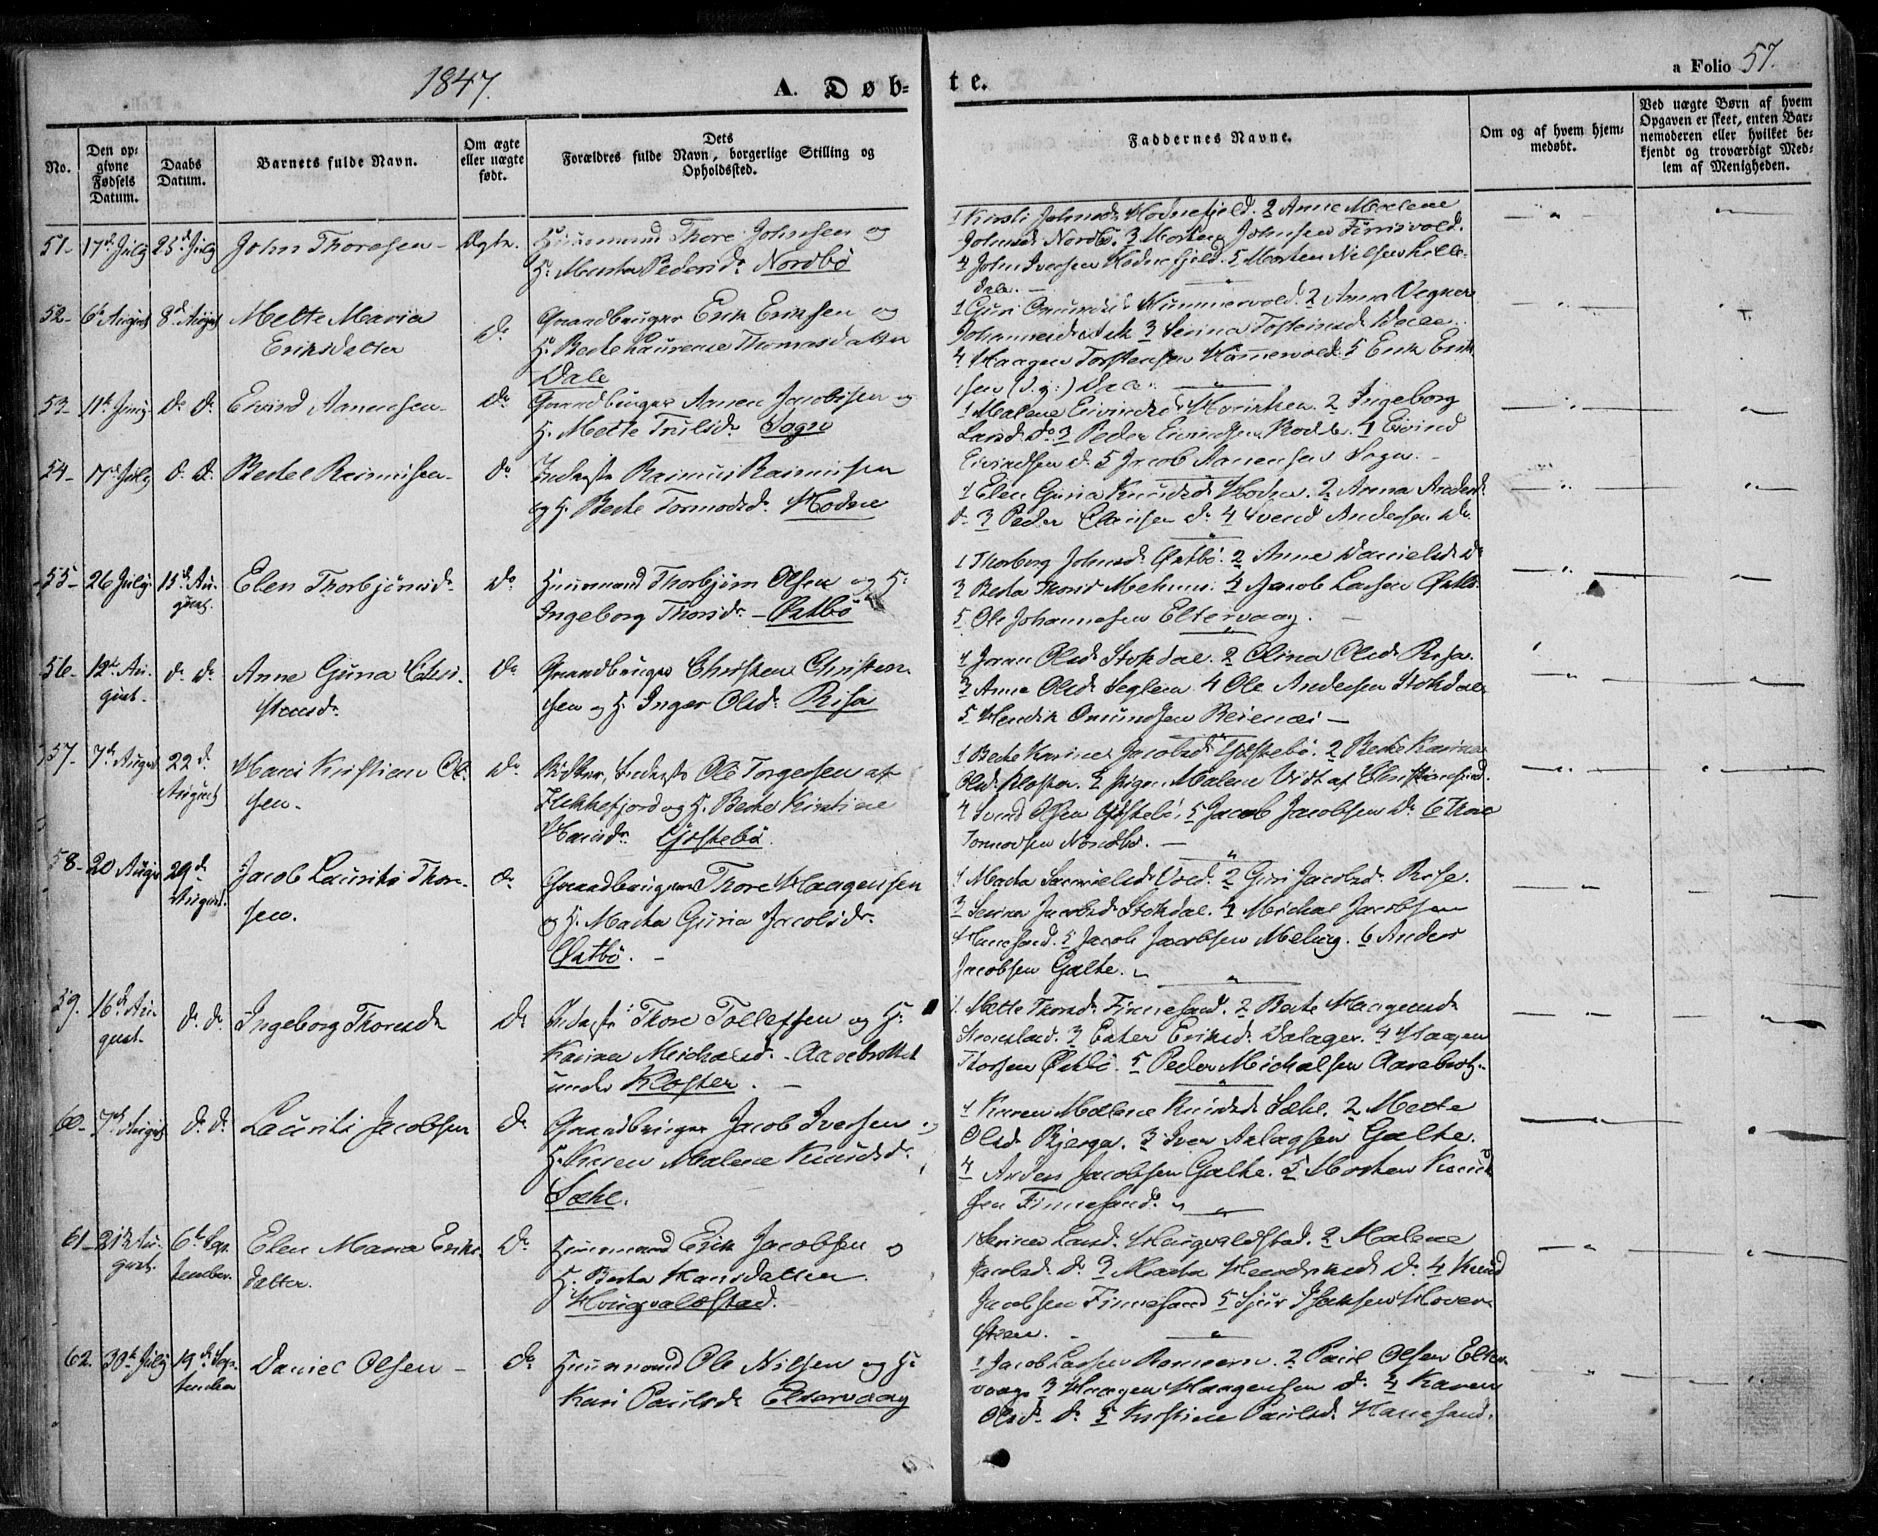 1847.
A. Døb-
te.
a Folio 57.
No.
Den op-
givne
Fødsels
Datum.
Daabs
Datum.
Barnets fulde Navn.
Om ægte
eller uægte
født.
Dets
Forældres fulde Navn, borgerlige Stilling og
Opholdssted.
Faddernes Navne.
Om og af hvem hjem-
medøbt.
Ved uægte Børn af hvem
Opgaven er skeet, enten Bar-
nemoderen eller hvilket be-
kjendt og troværdigt Med-
lem af Menigheden.
51- 17d July 25d July John Thoresen - Ægte.
Huusmand Thore Johnsen og
H. Marta Pedersd. Nordbø
1 Kirsti Johnsd. Hodnefjeld. 2 Anne Malene
Johnsd. Nordbø. 3 Morten Johnsen Finisvold.
4 John Iversen Hodnefjeld. 5 Morten Nilsen Lille-
dale. -
52- 6te August 8d August Mette Maria
Eriksdatter
Do
Gaardbruger Erik Eriksen og
H. Berte Laurense Thomasdatter
Dale
1 Guri Omundsd. 2 Anna
Johannesd. Ask 3 Serina Tosteinsd. Dale.
4 Haagen Torstensen 5 Erik Erik-
sen (d. y:) Dale.
53- 11te Juny Do Do Eivind Aanensen - Do
Gaardbruger Aanen Jacobsen og
H. Mette Trulsd. Sogn
1 Malene Eivindsd. 2 Ingeborg
Larsd. Do 3 Peder Eivindsen 4 Eivind
Eivindsen Do 5 Jacob Aanensen Sogn. -
54- 17de July D. D. Bertel Rasmusen - Do
Inderste Rasmus Rasmusen
og H. Berte Tormodsd. Hodne
1 Elen Guria Knudsd. Hodne. 2 Anna Andersd.
Do 3 Peder Do 4 Svend Andersen Do
55- 26 July 15d Au-
gust.
Elen Thorbjørnsd. Do
Huusmand Thorbjørn Olsen og H.
Ingeborg Thorsd. - Østbø
1 Thorborg Johnsd. Østbø. 2 Anne Danielsd. Do
3 Berta Thorsd. 4 Jacob Larsen Østbø
5 Ole Johannesen Eltervaag. -
56- 12te Au-
gust.
D. Do Anne Guria Chri-
stensd.
Do
Gaardbruger Christen Christen-
sen og H. Inger Olsd. Risa
1 Joran Olsd. Stokdal. 2 Olina Olsd. Risa.
3 Anne Olsd. Seglem 4 Ole Andersen Stokdal
5 Hendrik Omundsen
57- 7de August 22d
August
Hans Kristian Ol-
sen.
Do
Inderste Ole Torgersen af
Flekkefjord og H. Berte Kirstine
Hansd. Gjostebø.
1 Berte Karine Jacobsd. Gjostebø. 2 Berte Karine
Olsd. Kloster. 3 pigen Malene af Christiansand.
4 Svend Olsen Gjostebø. 5 Jacob Jacobsen Do 6 Thore
Tormodsen Nordbø. -
58- 20 August 29d
August.
Jacob Laurits Thore-
sen.
Do
Gaardbruger Thore Haagensen
og H. Marta Guria Jacobsd.
Østbø. -
1 Marta Samuelsd. Vold. 2 Guri Jacobsd. Risa.
3 Serina Jacobsd. Stokdal. 4 Michal Jacobsen
Hanesand. 5 Jacob Jacobsen Meling. 6 Anders
Jacobsen Galte.
59. 16de Au-
gust-
D. D. Ingeborg Thoresd. Do
Inderste Thore Tollefsen og H.
Karina Michalsd. - Aarebrottet
under Kloster. -
1 Mette Thorsd. Finnesand. 2 Berte Haagensd.
3 Ester Eriksd. Dalager. 4 Haagen
Thorsen Østbø. 5 Peder Michalsen Aarebrot.
60- 7de August D. D. Laurits Jacobsen Do
Gaardbruger Jacob Iversen og
H. Karen Malene Knudsd.
Sæhl.
1 Karen Malene Knudsd. Sæhl. 2 Mette
Olsd. Bjerga. 3 Iver Aslagsen Galte.
4 Anders Jacobsen Galte. 5 Morten Knud-
sen Finnesand.
61- 21de Au-
gust.
6te Sep-
tember.
Elen Maria Eriks-
datter.
Do
Huusmand Erik Jacobsen og
H. Berta Hansdatter
Hougvaldstad.
1 Serina Larsd. Hougvaldstad. 2 Malene
Jacobsd. D. 3 Marta Hendriksd. D. 4 Knud
Jacobsen Finnesand 5 Sjur
62. 30te July 19de Sep-
tember
Daniel Olsen - Do
Huusmand Ole Nilsen og H.
Kari Paulsd. Eltervaag
1 Jacob Larsen 2 Paul Olsen Elter-
vaag 3 Haagen Haagensen D. 4 Karen
Olsd. D. 5 Kirstine Paulsd. Hanesand.